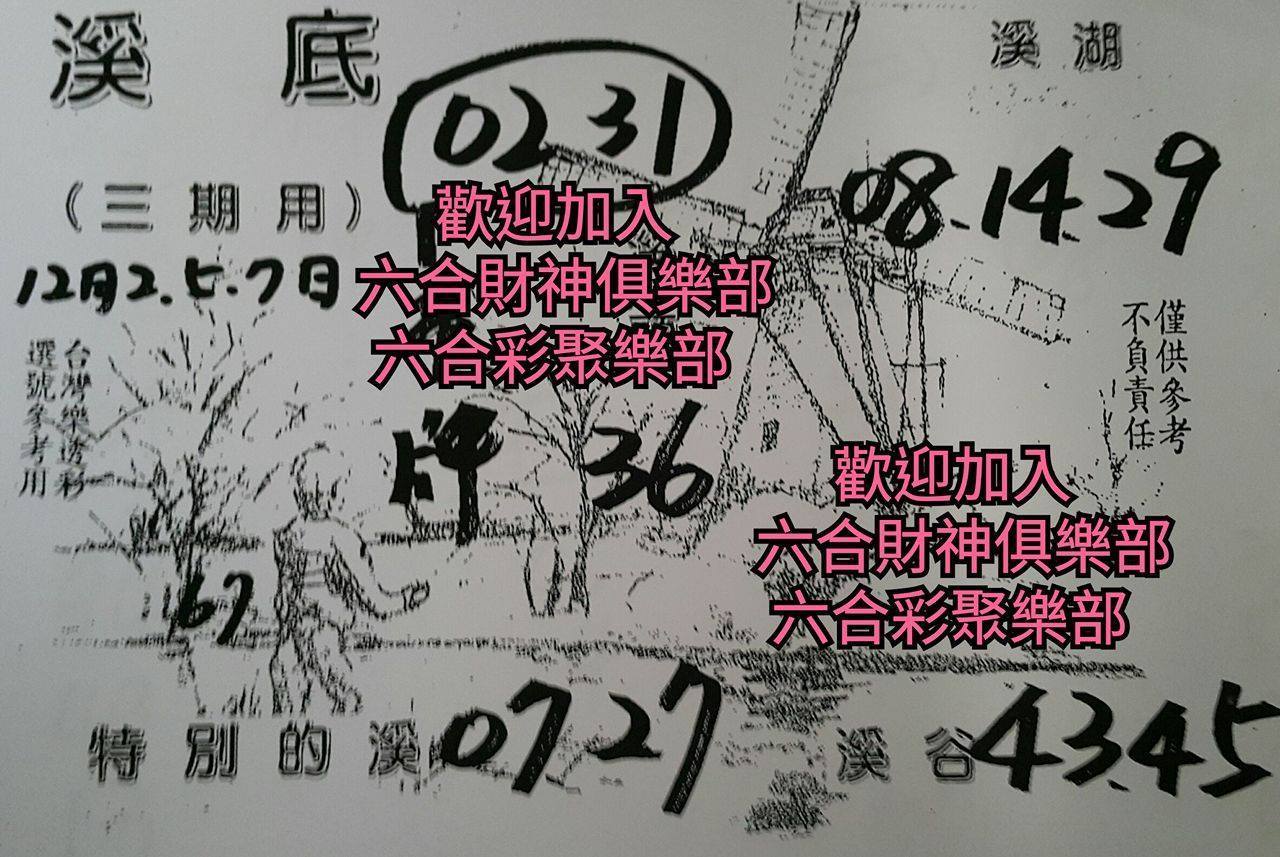 溪底
02 31
溪湖
08.14.29
(三期用)
12月2.5.7日
歡迎加入
六合財神俱樂部
六合彩聚樂部
台灣樂透彩
選號參考用
僅供參考
不負責任
牌 36
歡迎加入
六合財神俱樂部
六合彩聚樂部
特別的溪 07 27
溪谷 43.45